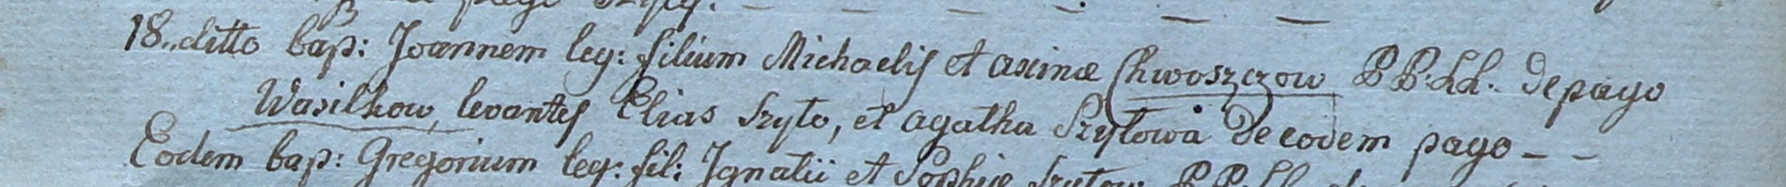 pago
18. ditto bap: Joannem leg: filium Michaelis et axinæ Chwoszczow PP.LL. de pago
Wasilkow, levantes Elias Szyło, et agatha Szyłowa de eodem pago - -
Eodem bap: Gregorium leg: fil: Ignatii et Sophiæ PP.LL.